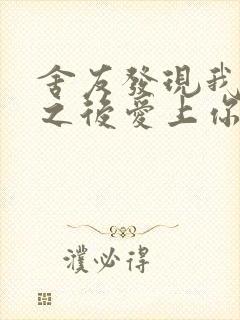 舍友發現我
之後愛上你
濮必得